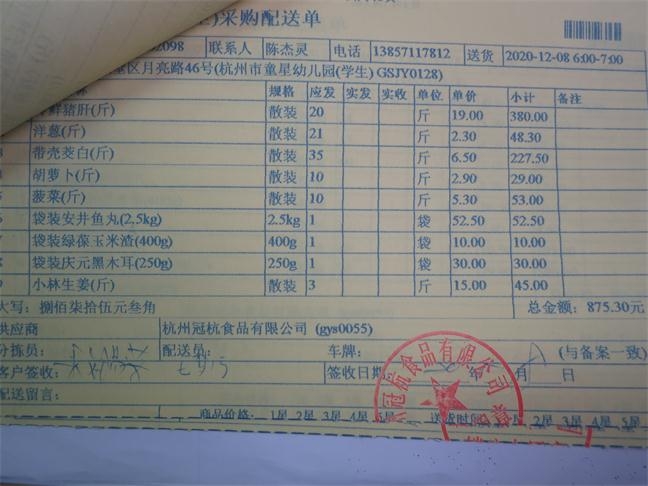 )采购配送单
2098 联系人 陈杰灵 电话 13857117812 送货 2020-12-08 6:00-7:00
区月亮路46号(杭州市童星幼儿园(学生) GSJY0128)
称 规格 应发 实发 实收 单位 单价 小计 备注
鲜猪肝(斤) 散装 20 斤 19.00 380.00
洋葱(斤) 散装 21 斤 2.30 48.30
带壳茭白(斤) 散装 35 斤 6.50 227.50
胡萝卜(斤) 散装 10 斤 2.90 29.00
菠菜(斤) 散装 10 斤 5.30 53.00
袋装安井鱼丸(2.5kg) 2.5kg 1 袋 52.50 52.50
袋装绿葆玉米渣(400g) 400g 1 袋 10.00 10.00
袋装庆元黑木耳(250g) 250g 1 袋 30.00 30.00
小林生姜(斤) 散装 3 斤 15.00 45.00
大写: 捌佰柒拾伍元叁角 总金额: 875.30元
供应商 杭州冠杭食品有限公司 (gys0055)
分拣员: 配送员: 车牌: (与备案一致)
客户签收: 签收日期 年 月 日
配送留言:
商品价格: 1星 2星 3星 4星 5星 送货时间 1星 2星 3星 4星 5星
冠杭食品有限公司